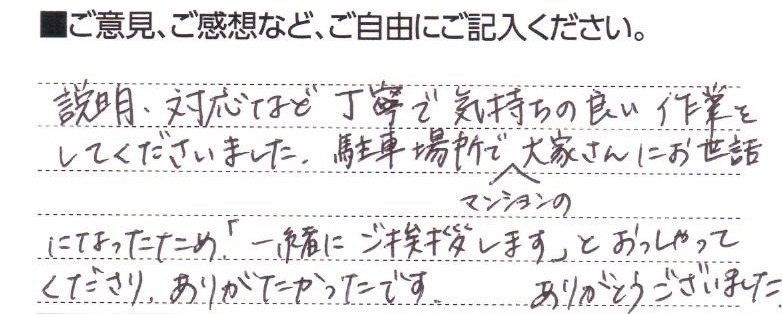 ■ご意見、ご感想など、ご自由にご記入ください。
説明、対応など丁寧で気持ちの良い作業を
してくださいました。駐車場所で大家さんにお世話
マンションの
になったため、「一緒にご挨拶します」とおっしゃって
くださり、ありがたかったです。 ありがとうございました